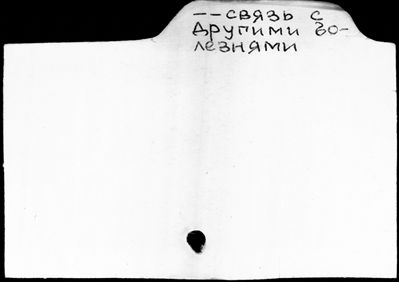 -- связь с
другими бо-
лезнями